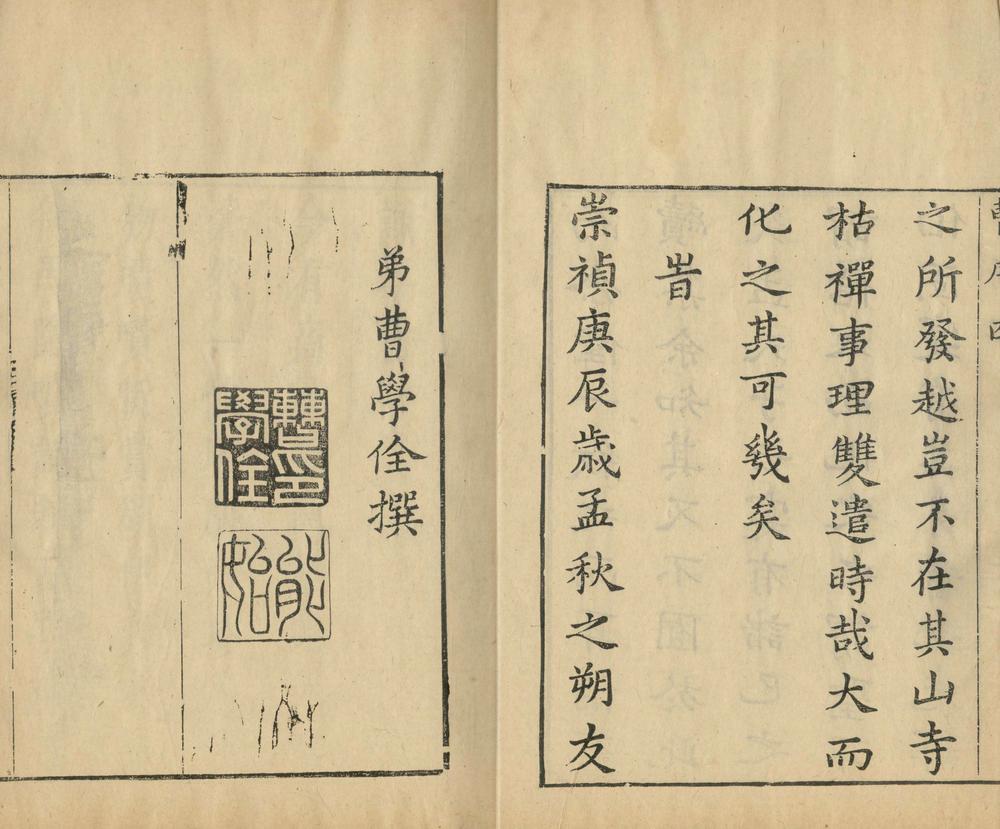 之所發越豈不在其山寺
枯禪事理雙遣時哉大而
化之其可幾矣
旹
崇禎庚辰歲孟秋之朔友
弟曹學佺撰
曹印學佺
能始